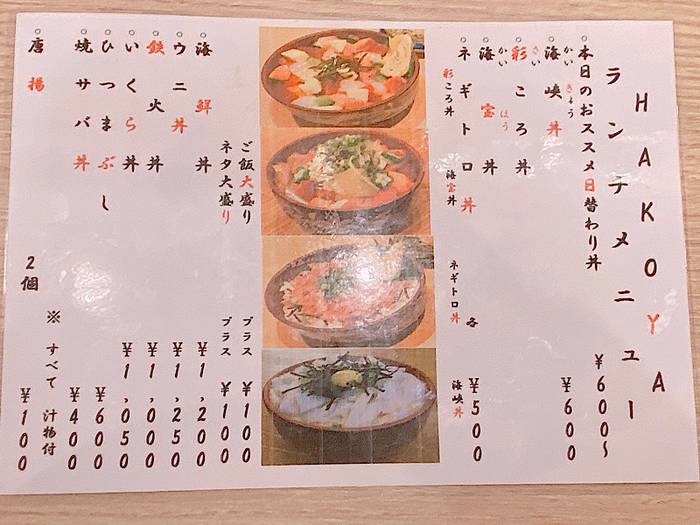 HAKOYA
ランチメニュー
○本日のおススメ日替わり丼 ¥600～
○海峡丼 ¥600
かいきょう
○彩ころ丼
さい
○海宝丼
かいほう
○ネギトロ丼 各¥500
彩ころ丼 海宝丼 ネギトロ丼 海峡丼
ご飯大盛り プラス ¥100
ネタ大盛り プラス ¥100
○海鮮丼 ¥1,200
○ウニ丼 ¥1,250
○鉄火丼 ¥1,050
○いくら丼 ¥1,050
○ひつまぶし ¥600
○焼サバ丼 ¥400
※ すべて 汁物付
○唐揚 2個 ¥100